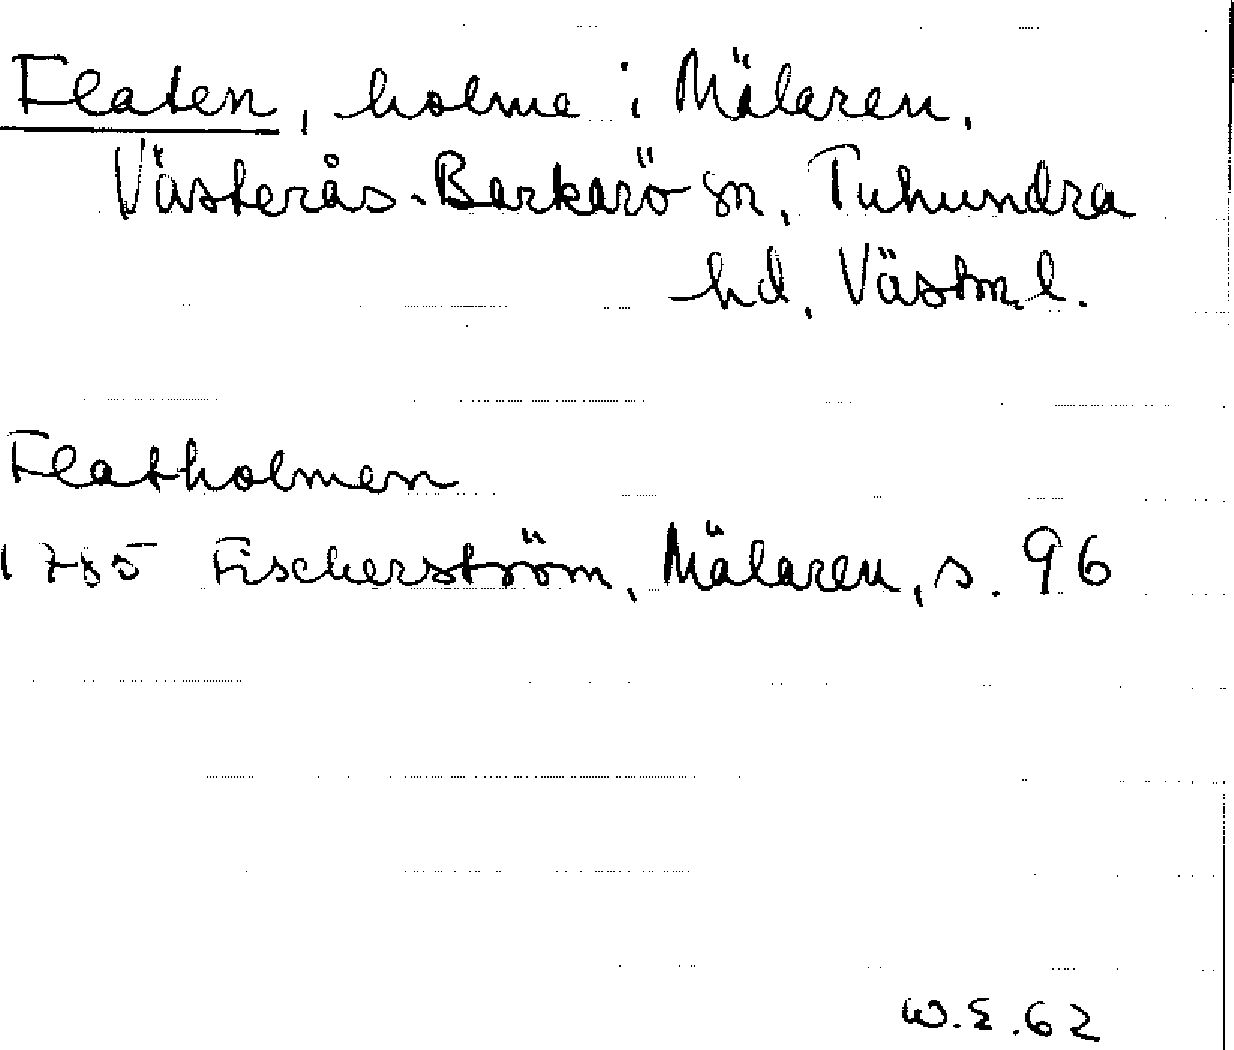 Flaten, holme i Mälaren,
Västerås-Barkarö sn, Tuhundra
hd, Västm. l.
Flatholmen
1785 Fischerström, Mälaren, s. 96
W.E. 62